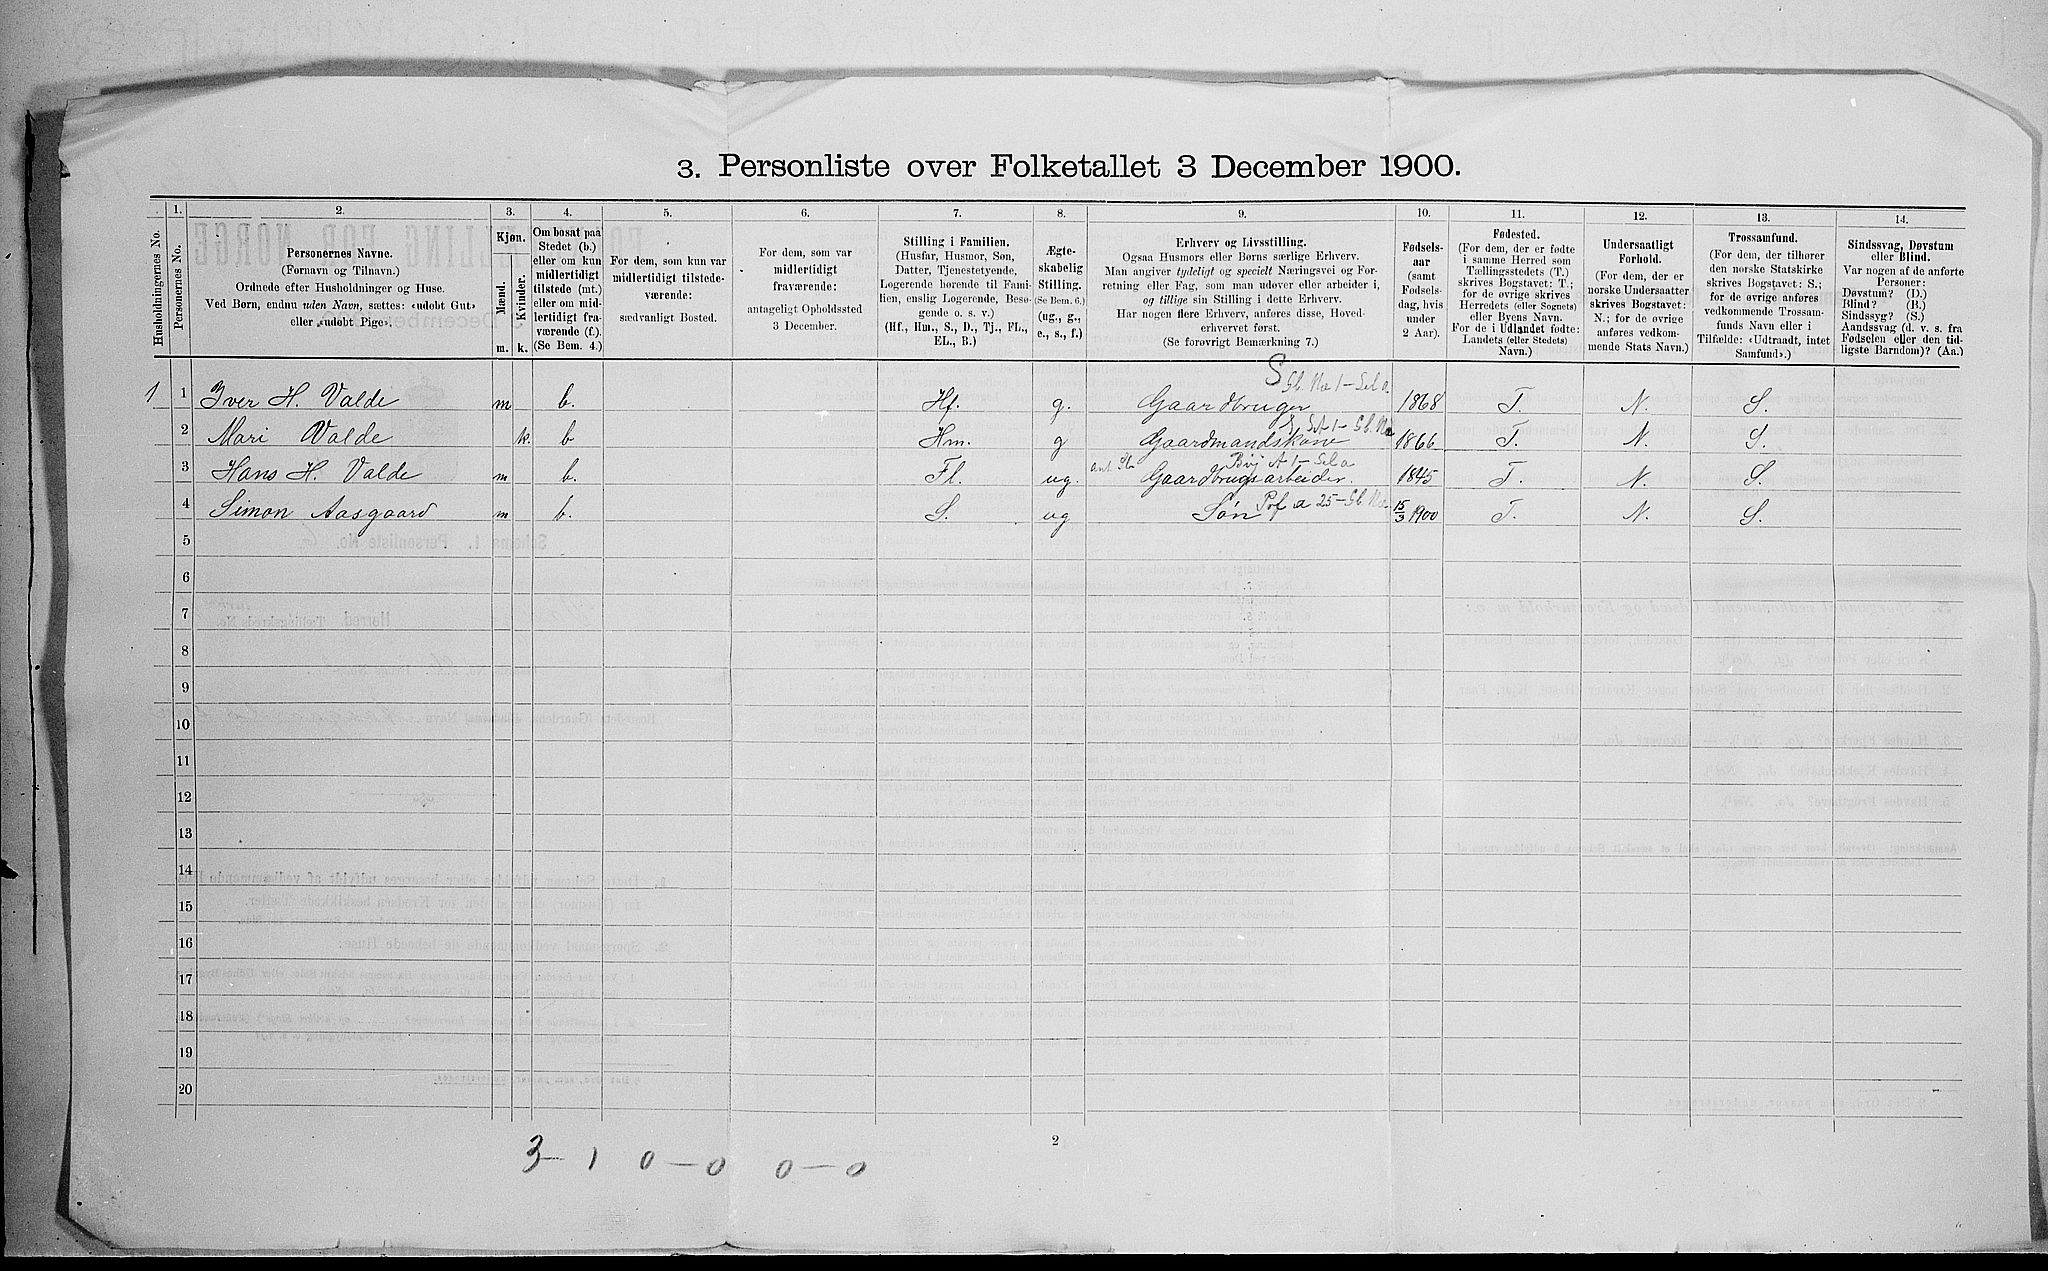 3. Personliste over Folketallet 3 December 1900.
1. 2. 3. 4. 5. 6. 7. 8. 9. 10. 11. 12. 13. 14.
Husholdningernes No.
Personernes No.
Personernes Navne.
(Fornavn og Tilnavn.)
Ordnede efter Husholdninger og Huse.
Ved Børn, endnu uden Navn, sættes: «udøbt Gut»
eller «udøbt Pige».
Kjøn.
Mænd.
Kvinder.
m. k.
Om bosat paa
Stedet (b.)
eller om kun
midlertidigt
tilstede (mt.)
eller om mid-
lertidigt fra-
værende (f.).
(Se Bem. 4.)
For dem, som kun var
midlertidigt tilstede-
værende:
sædvanligt Bosted.
For dem, som var
midlertidigt
fraværende:
antageligt Opholdssted
3 December.
Stilling i Familien.
(Husfar, Husmor, Søn,
Datter, Tjenestetyende,
Logerende hørende til Fami-
lien, enslig Logerende, Besø-
gende o. s. v.)
(Hf., Hm., S., D., Tj., FL.,
EL., B.)
Ægte-
skabelig
Stilling.
(Se Bem. 6.)
(ug., g.,
e., s., f.)
Erhverv og Livsstilling.
Ogsaa Husmors eller Børns særlige Erhverv.
Man angiver tydeligt og specielt Næringsvei og For-
retning eller Fag, som man udøver eller arbeider i,
og tillige sin Stilling i dette Erhverv.
Har nogen flere Erhverv, anføres disse, Hoved-
erhvervet først.
(Se forøvrigt Bemærkning 7.)
Fødsels-
aar
(samt
Fødsels-
dag, hvis
under
2 Aar).
Fødested.
(For dem, der er fødte
i samme Herred som
Tællingsstedets (T.)
skrives Bogstavet: T.;
for de øvrige skrives
Herredets (eller Sognets)
eller Byens Navn.
For de i Udlandet fødte:
Landets (eller Stedets)
Navn.)
Undersaatligt
Forhold.
(For dem, der er
norske Undersaatter
skrives Bogstavet:
N.; for de øvrige
anføres vedkom-
mende Stats Navn.)
Trossamfund.
(For dem, der tilhører
den norske Statskirke
skrives Bogstavet: S.;
for de øvrige anføres
vedkommende Trossam-
funds Navn eller i
Tilfælde: «Udtraadt, intet
Samfund».)
Sindssvag, Døvstum
eller Blind.
Var nogen af de anførte
Personer:
Døvstum? (D.)
Blind? (B.)
Sindssyg? (S.)
Aandssvag (d. v. s. fra
Fødselen eller den tid-
ligste Barndom)? (Aa.)
1 1 Iver H. Valde m b. Hf. g. Gaardbruger 1868 T. N. S.
2 Mari Valde k. b Hm. g Gaardmandskone 1866 T. N. S.
3 Hans H. Valde m b. Fl. ug. Gaardbrugsarbeider. 1845 T. N. S.
4 Simon Aasgaard m b. S. ug Søn 15/3 1900 T. N. S.
5
6
7
8
9
10
11
12
13
14
15
16
17
18
19
20
2
3 – 1 0 – 0 0 – 0